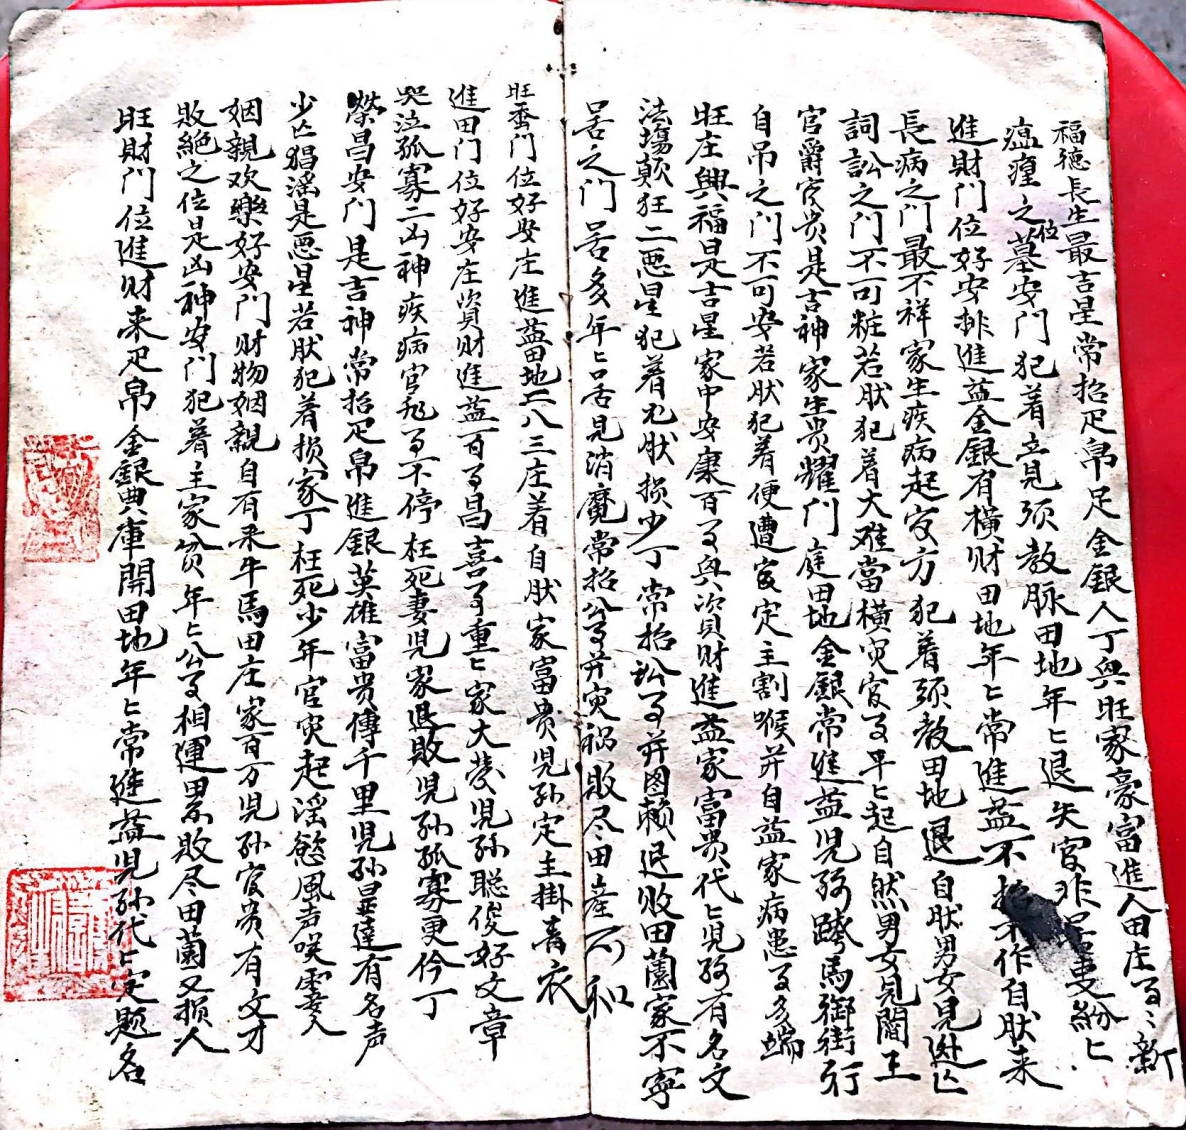 福德長生最吉星常招疋帛足金銀人丁興旺家豪富進人田庄日〻新
瘟㾮之位墓安門犯着立見須教脉田地年〻退失官非紛〻
進財門位好安排進益金銀有横财田地年〻常進益不招不作自肰来
長病之門最不祥家生疾病起官方犯着須教田地退自肰男女見逃亡
詞訟之門不可粧若肰犯着大难當横灾官事早〻起自然男女見閻王
官爵官贵是吉神家生贵耀門庭田地金銀常進益児孫跨馬御街行
自吊之門不可安若肰犯着便遭官定主割喉并自益家病患事多端
旺庄興福是吉星家中安康百事兴资财進益家富贵代〻児孫有名文
法場颠狂二恶星犯着尤肰损少丁常招讼事并图赖退败田薗家不寧
是之門是多年〻口舌見消魔常招公事并灾祸敗尽田産不和
旺蚕門位好安庄進益田地二八三庄着自肰家富贵児孙定主掛青衣
進田門位好安庄資财進益百事昌喜事重〻家大發児孙聪俊好文章
哭泣孤寡二凶神疾病官非事不停枉死妻児家退敗児孙孤寡更伶丁
榮昌安門是吉神常招疋帛進銀英雄富贵傳千里児孙显達有名声
少亡猖淫是恶星若肰犯着损家丁枉死少年官灾起淫慾風声唉雲人
姻親欢樂好安門财物姻親自有来牛馬田庄家百万児孙官贵有文才
敗絶之位是凶神安門犯着主家贫年〻公事相連累敗尽田薗又损人
旺财門位進财来疋帛金銀典庫開田地年〻常進益児孙代〻定题名